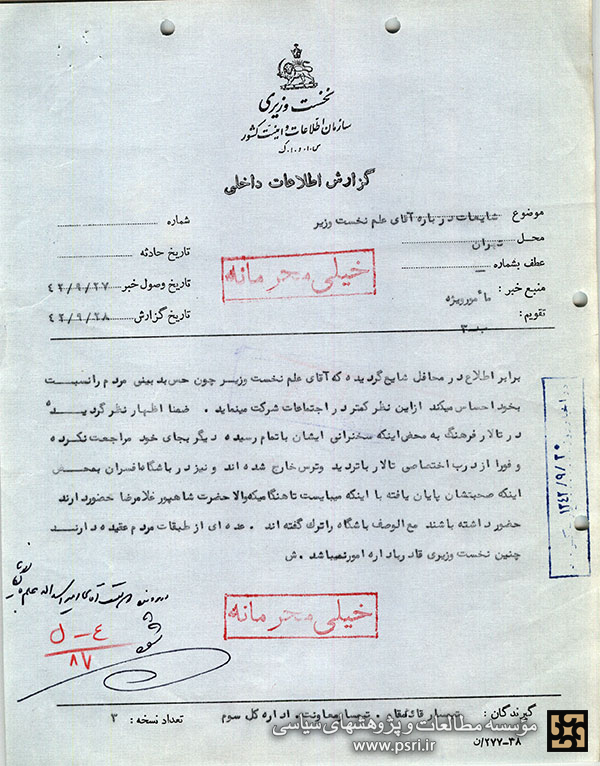 نخست وزیری
سازمان اطلاعات و امنیت کشور
س.ا.و.ا.ک
گزارش اطلاعات داخلی
موضوع شایعات درباره آقای علم نخست وزیر
شماره
محل تهران
تاریخ حادثه
عطف بشماره —
خیلی محرمانه
تاریخ وصول خبر ۴۲/۹/۲۷
منبع خبر : مأمور ویژه
تاریخ گزارش ۴۲/۹/۲۸
تقویم : ب-۳
برابر اطلاع در محافل شایع گردیده که آقای علم نخست وزیر چون حس بدبینی مردم را نسبت
بخود احساس میکند از این نظر کمتر در اجتماعات شرکت مینماید . ضمنا اظهار نظر گردیده
در تالار فرهنگ به محض اینکه سخنرانی ایشان باتمام رسیده دیگر بجای خود مراجعت نکرده
و فورا از درب اختصاصی تالار با تردید و ترس خارج شده اند و نیز در باشگاه افسران بمحض
اینکه صحبتشان پایان یافته با اینکه میبایست تا هنگامیکه والاحضرت شاهپور غلامرضا حضور دارند
حضور داشته باشند مع الوصف باشگاه را ترک گفته اند . عده ای از طبقات مردم عقیده دارند
چنین نخست وزیری قادر باداره امور نمیباشد . ش
۱۳۴۲/۹/۳۰
خیلی محرمانه
۴ - ل
۸۷
گیرندگان : تیمسار قائممقام . تیمسار معاونت . اداره کل سوم
تعداد نسخه : ۳
مؤسسه مطالعات و پژوهشهای سیاسی
www.psri.ir
۳۸-۲۷۷/ن